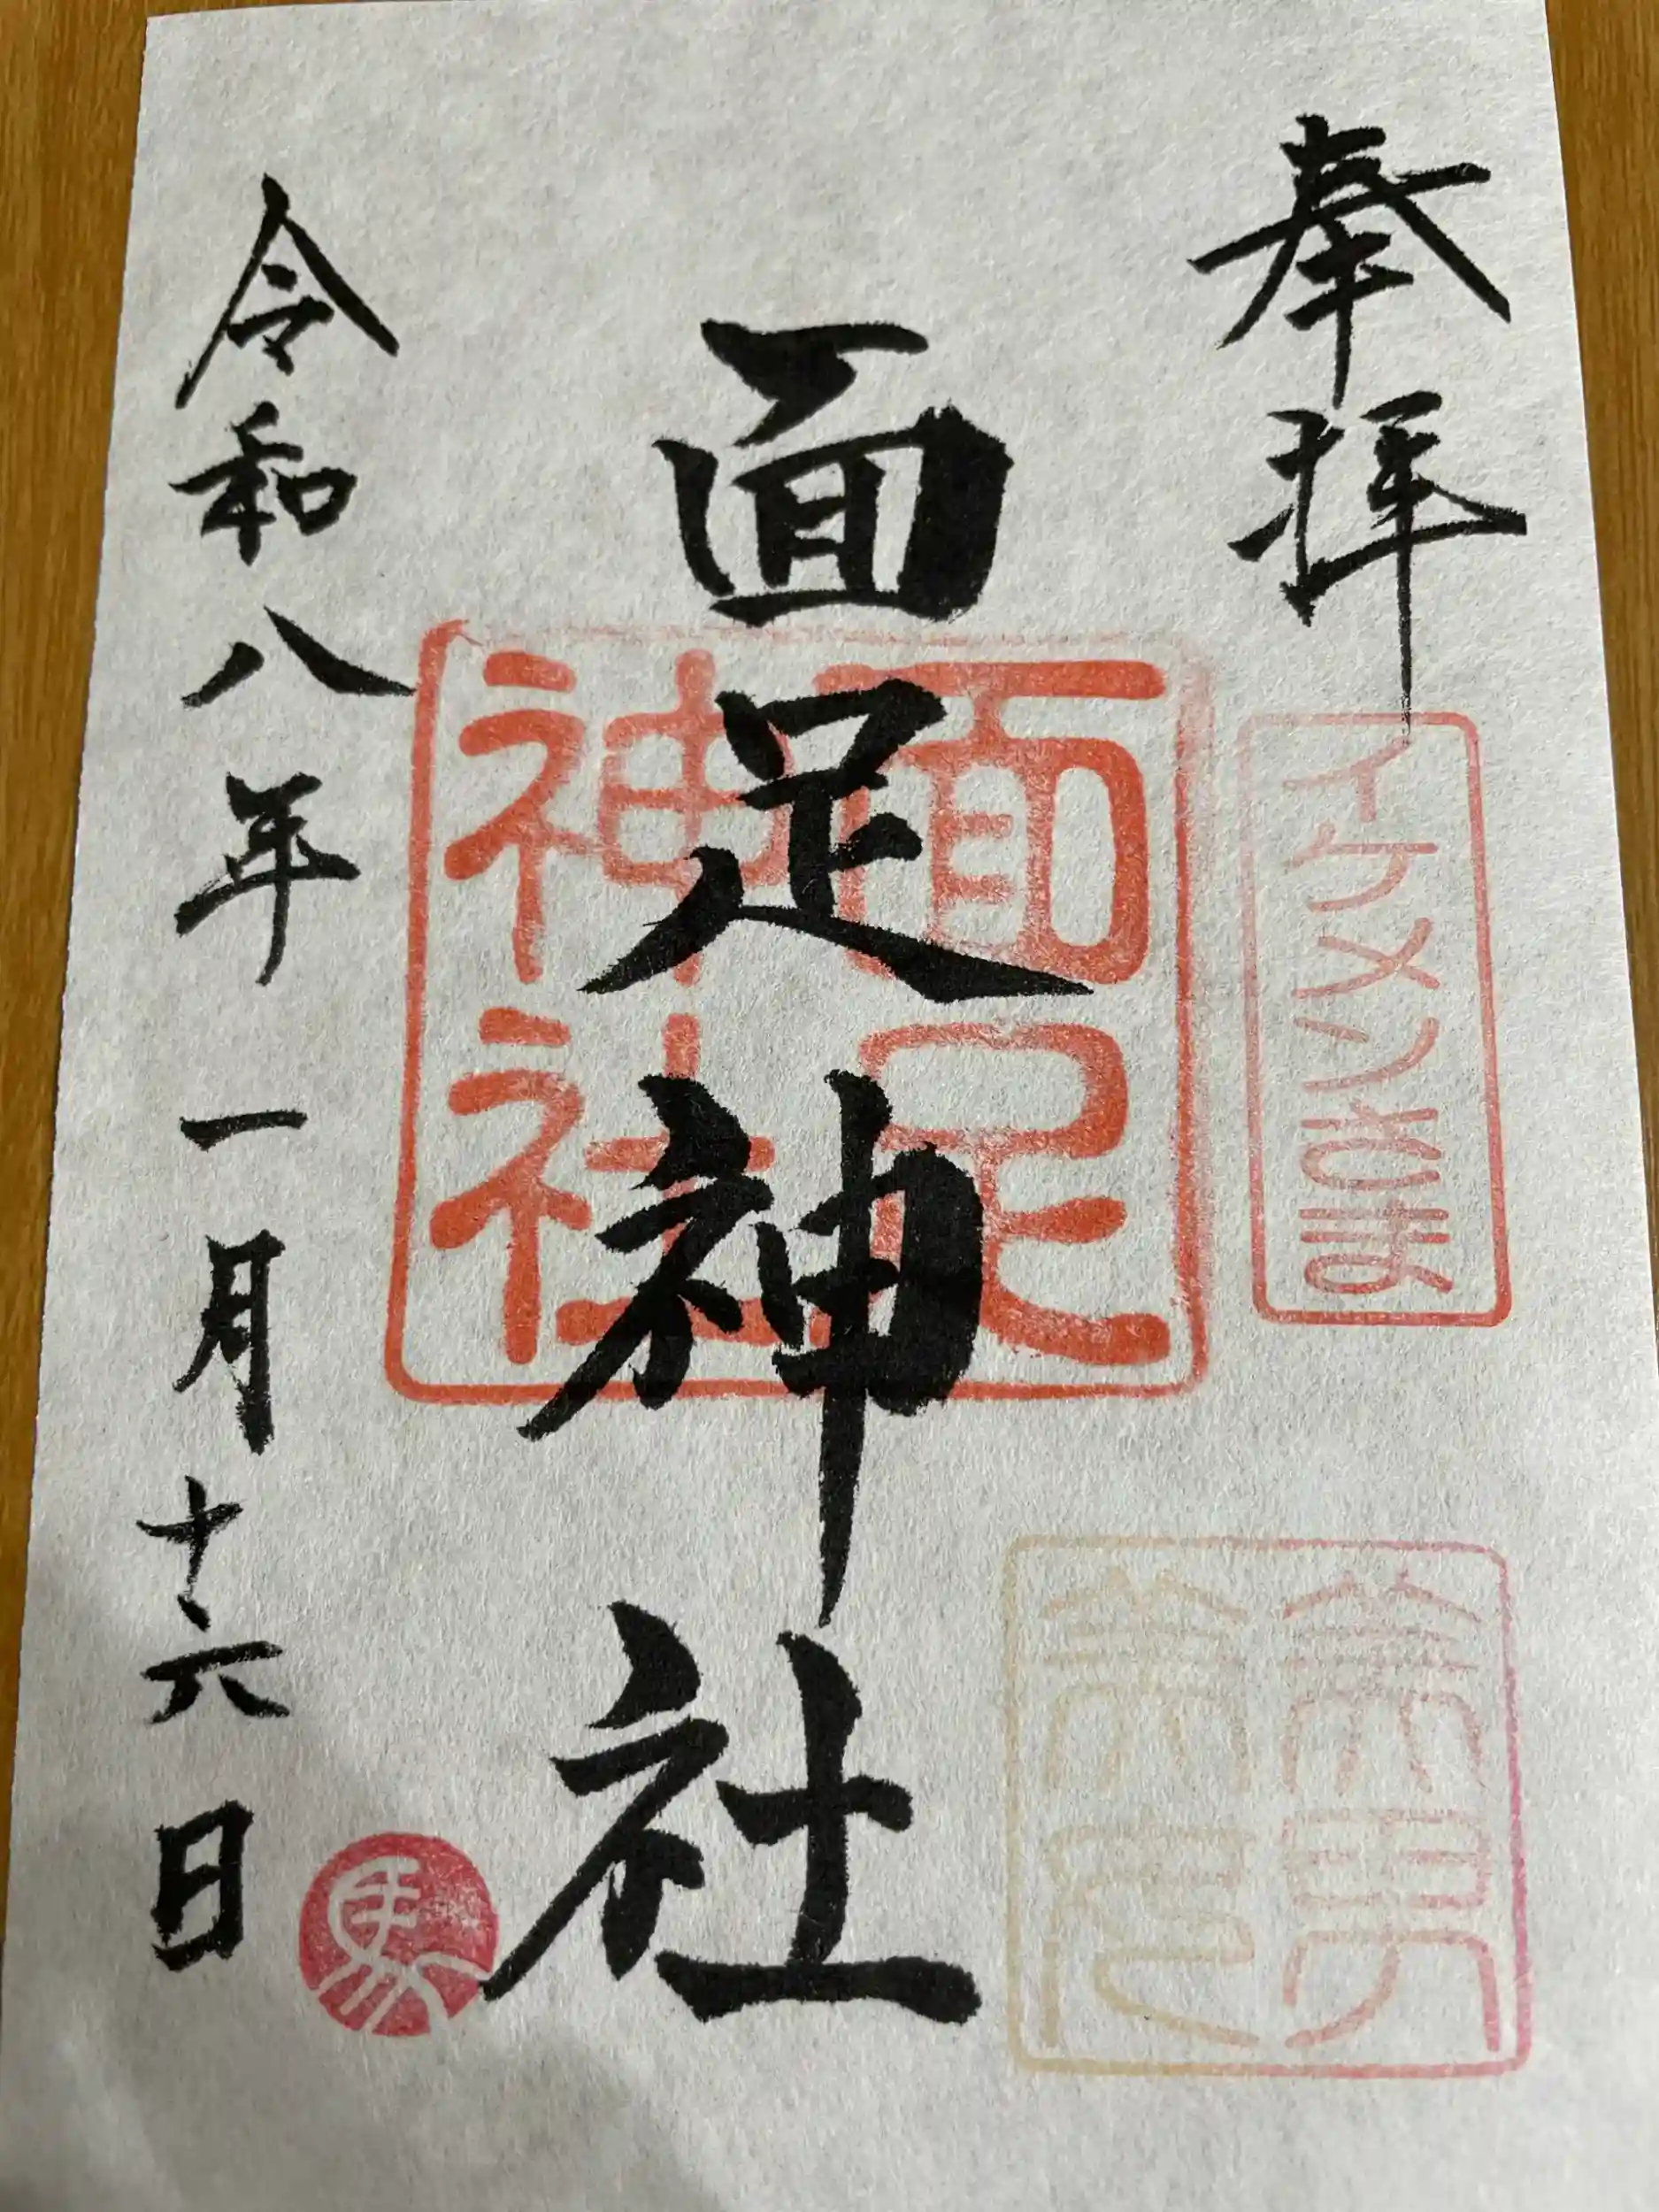 奉拝
イケメンさま
美男
美女
面足神社
面足
神社
令和八年一月十六日
馬